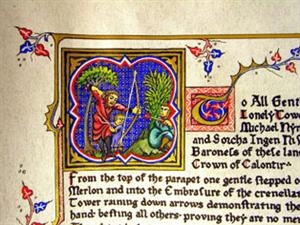 To All Gent
Lonely Tow
Michael Nyr
and Sorcha Ingen Ns
Baroness of these lan
Crown of Calontir
From the top of the parapet one gentle stepped o
Merlon and into the Embrasure of the crenella
Tower raining down arrows demonstrating the
hand: besting all others: proving they are no me